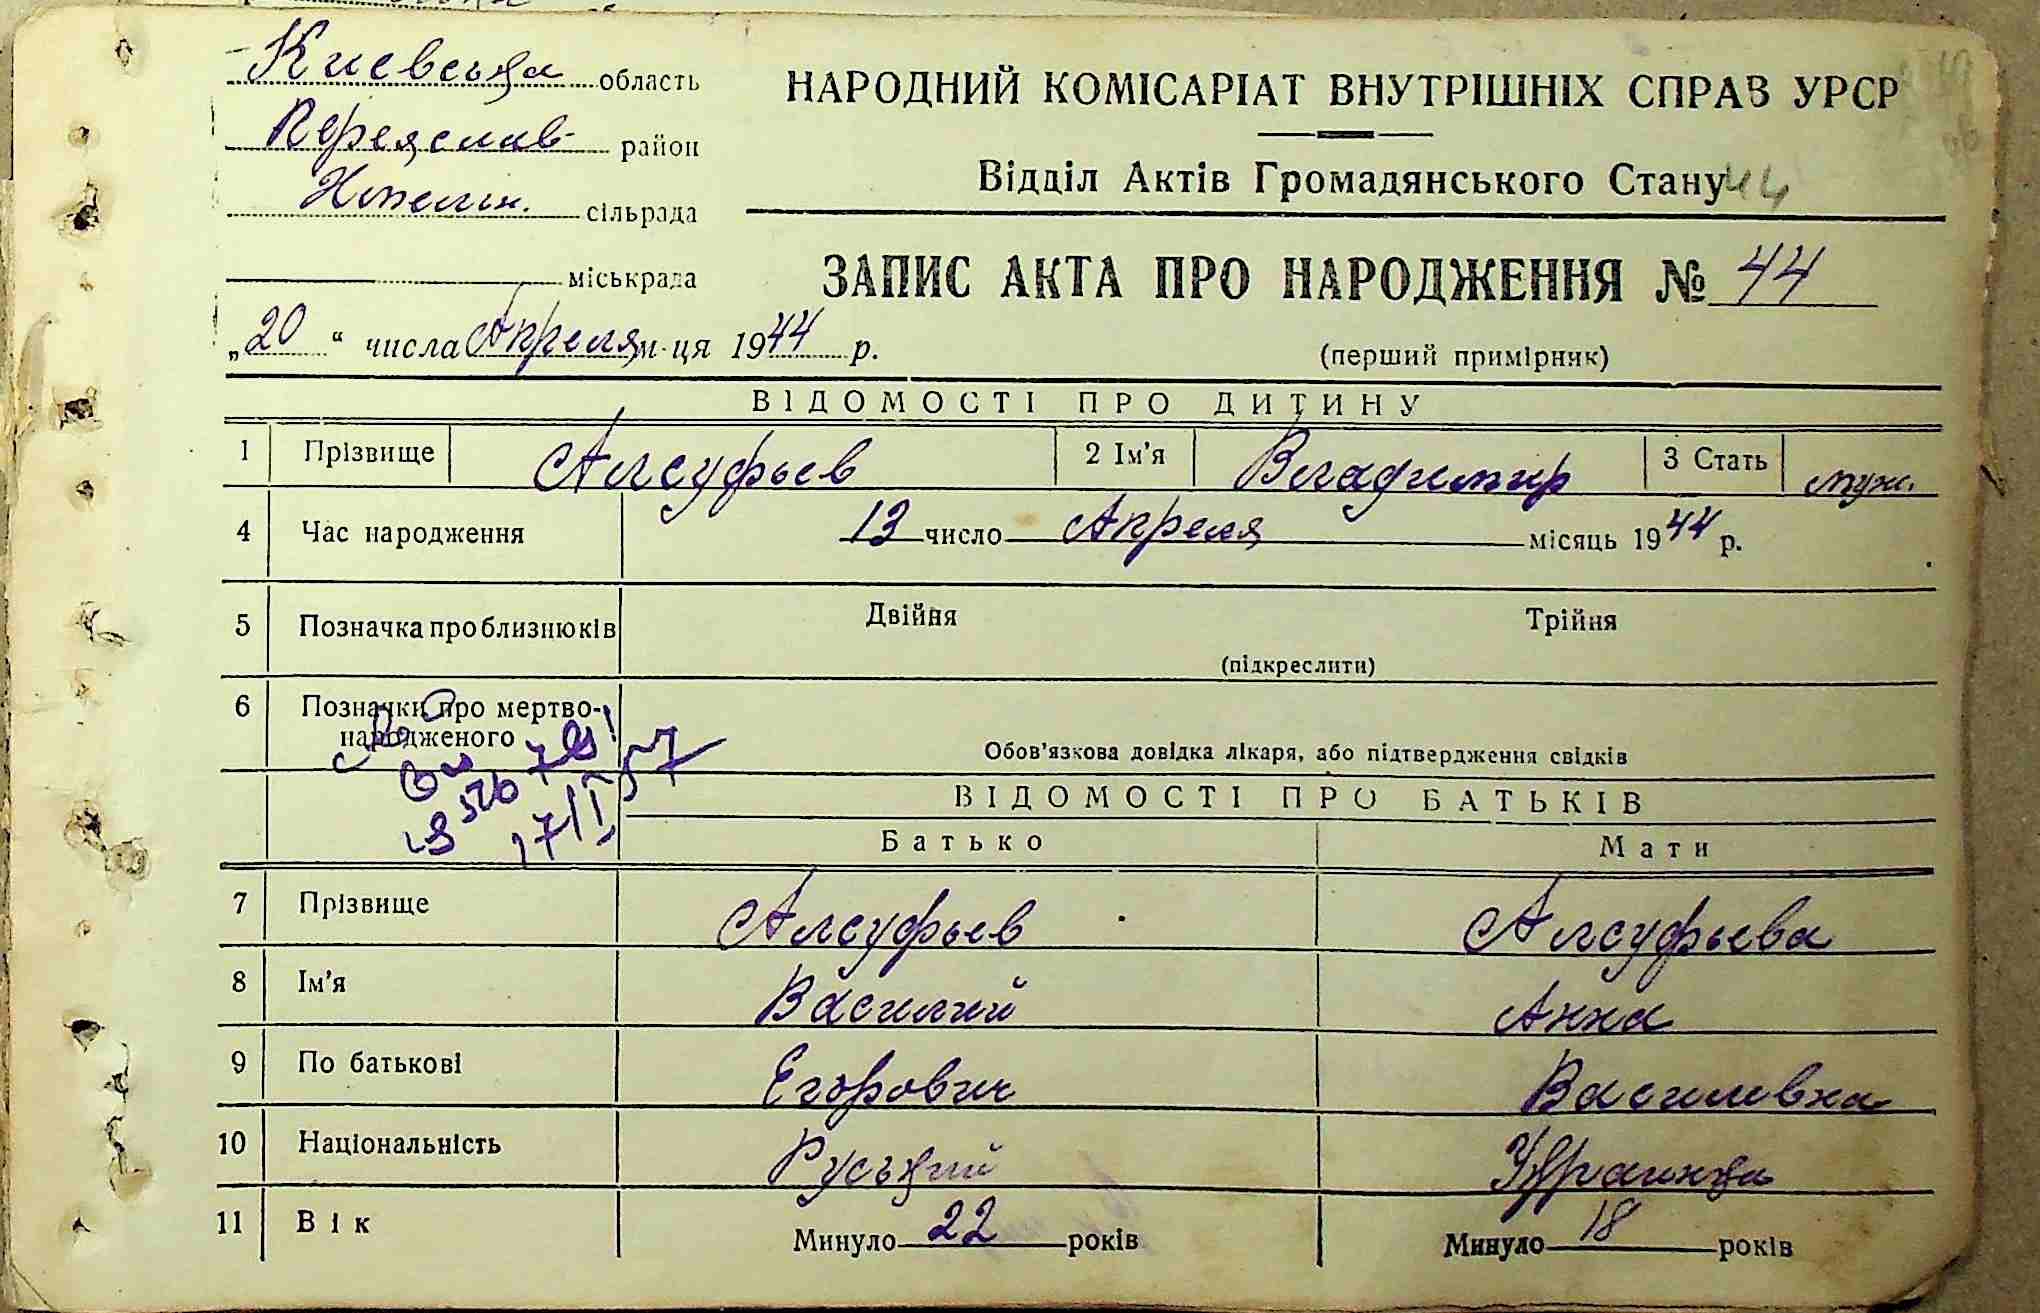 Киевська область
Переяслав район
сільрада
міськрада
„20" числа Апреля м-ця 1944 р.
НАРОДНИЙ КОМІСАРІАТ ВНУТРІШНІХ СПРАВ УРСР
Відділ Актів Громадянського Стану 44
ЗАПИС АКТА ПРО НАРОДЖЕННЯ № 44
(перший примірник)
ВІДОМОСТІ ПРО ДИТИНУ
1 Прізвище Алсуфьев 2 Ім'я Владимир 3 Стать муж.
4 Час народження 13 число Апреля місяць 1944 р.
5 Позначка про близнюків Двійня Трійня
(підкреслити)
6 Позначки про мертво-
народженого
Обов'язкова довідка лікаря, або підтвердження свідків
17/I 57
ВІДОМОСТІ ПРО БАТЬКІВ
Батько Мати
7 Прізвище Алсуфьев Алсуфьева
8 Ім'я Василий Анна
9 По батькові Егорович Василивна
10 Національність Руський Украинка
11 Вік Минуло 22 років Минуло 18 років